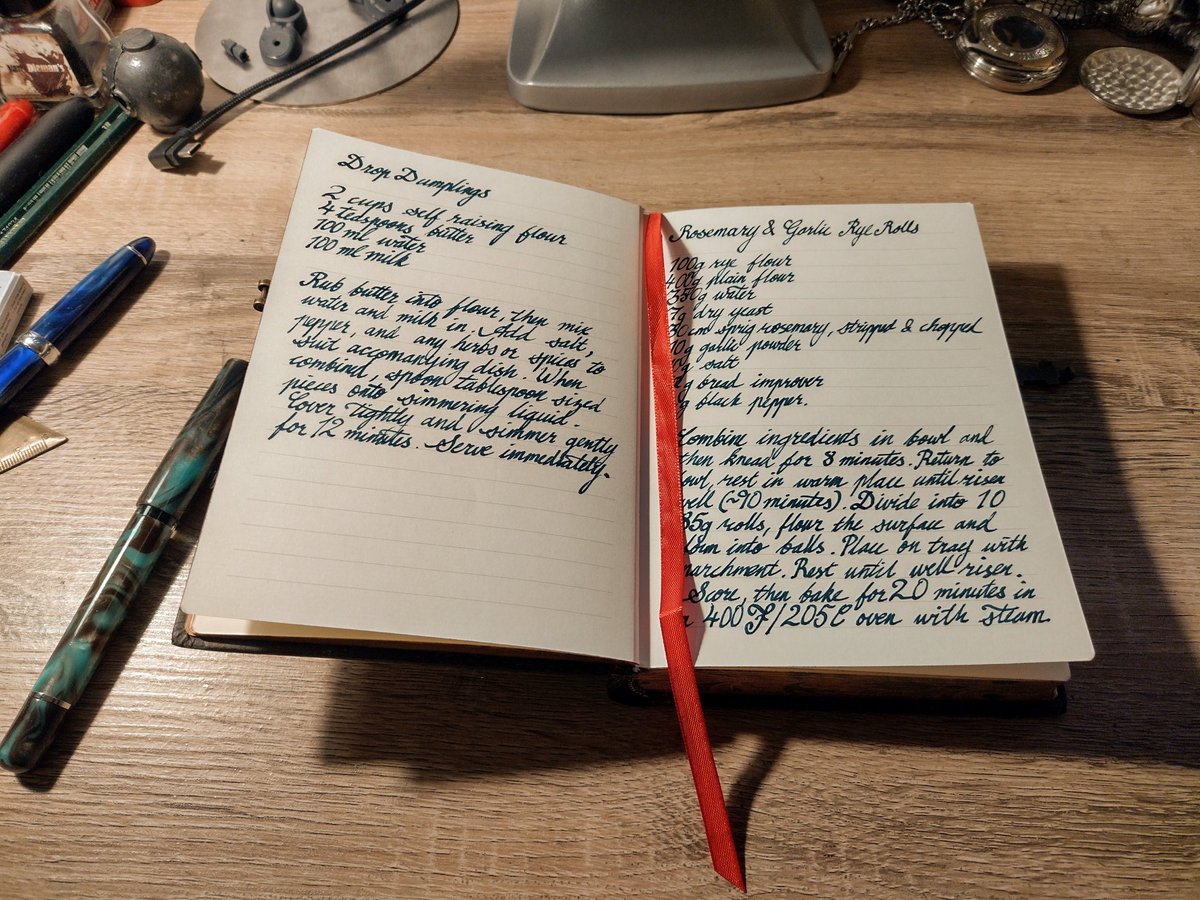 Dieman's
Drop Dumplings
2 cups self raising flour
4 teaspoons butter
100 ml water
100 ml milk
Rub butter into flour, then mix
water and milk in. Add salt,
pepper, and any herbs or spices to
suit accomanying dish. When
combined, spoon tablespoon sized
pieces onto simmering liquid.
Cover tightly and simmer gently
for 12 minutes. Serve immediately.
Rosemary & Garlic Rye Rolls
100g rye flour
400g plain flour
350g water
7g dry yeast
30cm sprig rosemary, stripped & chopped
10g garlic powder
salt
bread improver
black pepper.
Combine ingredients in bowl and
then knead for 8 minutes. Return to
bowl, rest in warm place until risen
well (~90 minutes). Divide into 10
85g rolls, flour the surface and
form into balls. Place on tray with
parchment. Rest until well risen.
Score, then bake for 20 minutes in
a 400F/205C oven with steam.